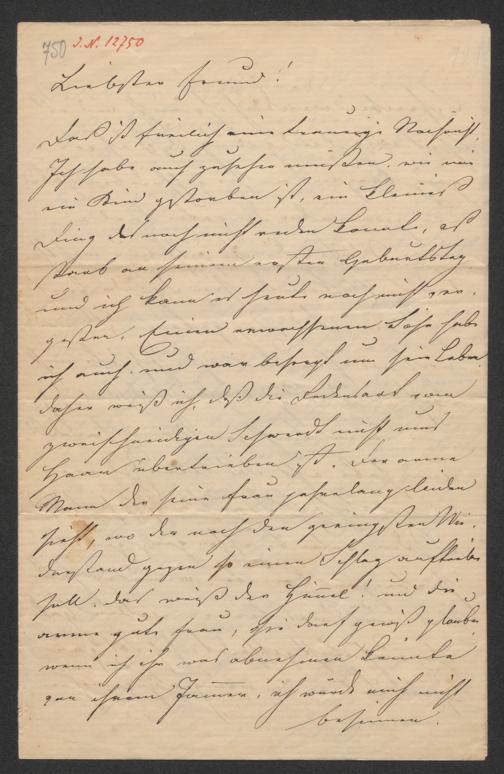 750 J.N. 12750
Liebster Freund!
Das ist freilich eine traurige Nachricht.
Ich habe auch zusehen müßen, wie mir
ein Kind gestorben ist, ein kleines
Ding das noch nicht reden konnte, es
starb an seinem ersten Geburtstag
und ich kann es heute noch nicht ver-
gessen. Einen erwachsenen Sohn habe
ich auch und war besorgt um sein Leben,
daher weiß ich, daß die Redensart vom
zweischneidigen Schwerdt nicht ums
Haar übertrieben ist. Der arme
Mann der seine Frau jahrelang leiden
sieht, wo der noch den geringsten Wi-
derstand gegen so einen Schlag auftreiben
soll, das weiß der Himmel! und die
arme gute Frau, sie darf gewiß glauben
wenn ich ihr was abnehmen könnte
von ihrem Jammer, ich würde mich nicht
besinnen.